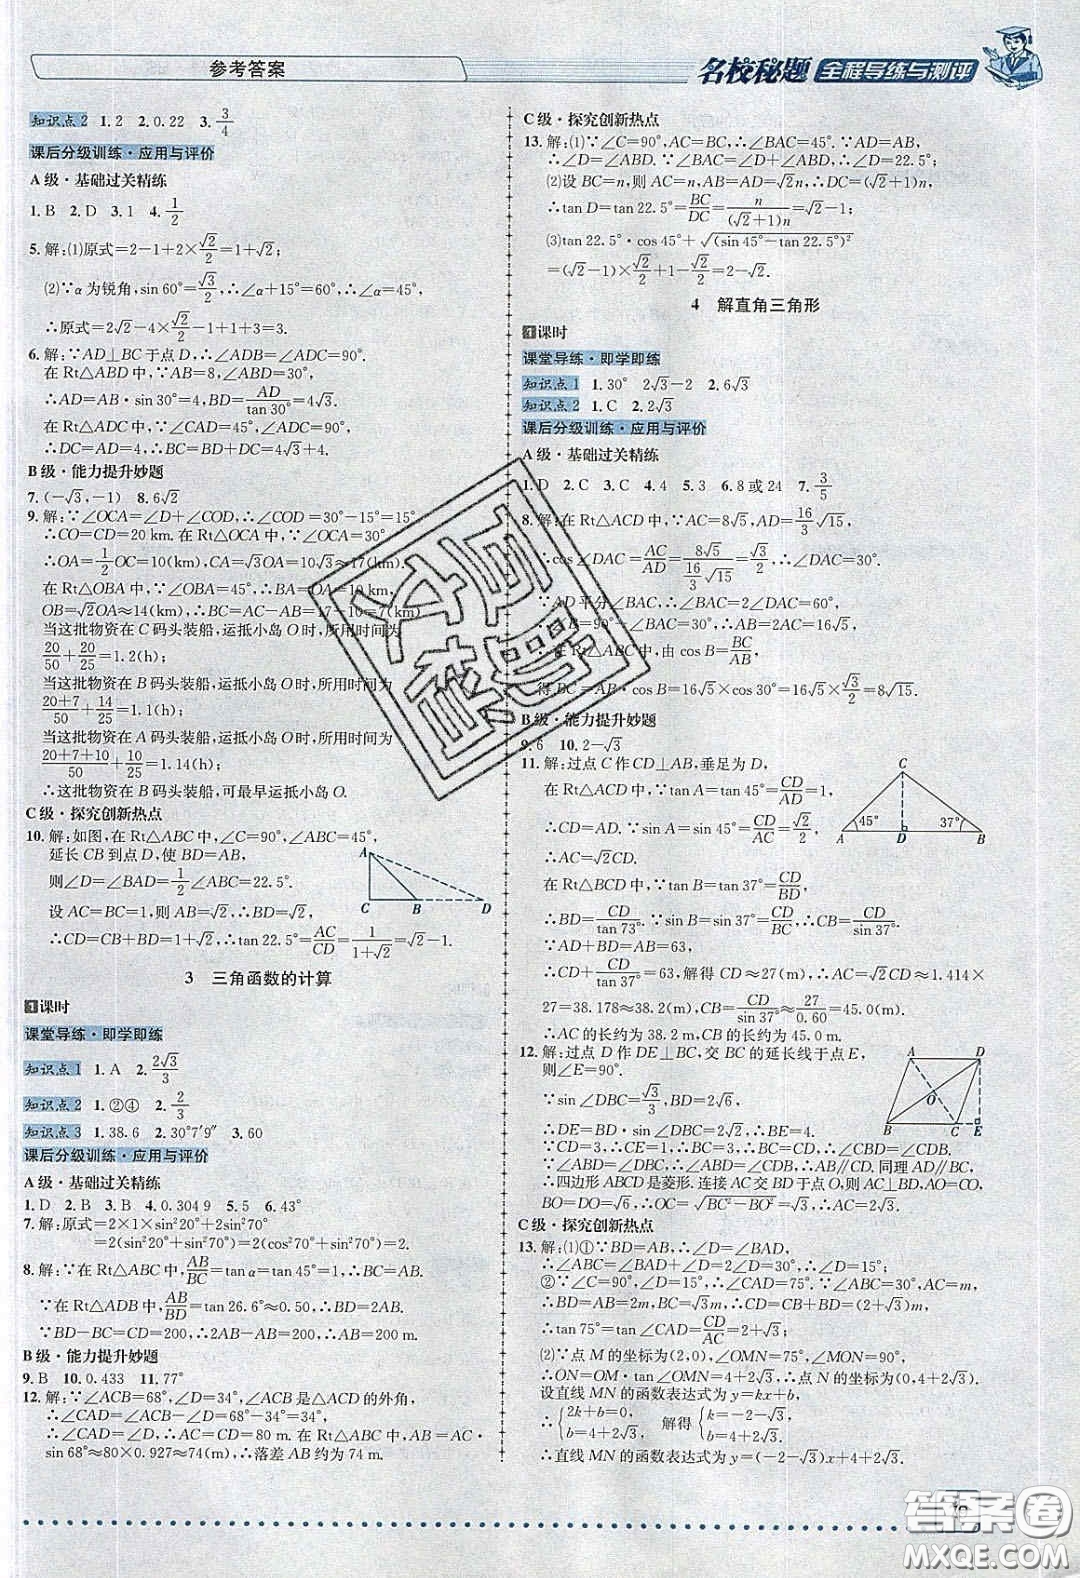 参考答案
名校秘题 全程导练与测评
知识点2 1.2 2.0.22 3.3/4
课后分级训练·应用与评价
A级·基础过关精练
1.B 2.D 3.1 4.1/2
5.解:(1)原式=2-1+2×√2/2=1+√2;
(2)∵α为锐角,sin 60°=√3/2,∴α+15°=60°,∴α=45°,
∴原式=2√2-4×√2/2-1+1=0.
6.解:∵AD⊥BC于点D,∴∠ADB=∠ADC=90°.
在Rt△ABD中,∵AB=8,∠ABD=30°,
∴AD=AB·sin 30°=4,BD=AD/tan 30°=4√3.
在Rt△ADC中,∵∠CAD=45°,∠ADC=90°,
∴DC=AD=4,∴BC=BD+DC=4√3+4.
B级·能力提升妙题
7.(-√3,-1) 8.6√2
9.解:∵∠OCA=∠D+∠COD,∴∠COD=30°-15°=15°,
∴CO=CD=20 km.在Rt△OCA中,∵∠OCA=30°,
∴OA=1/2OC=10(km),CA=√3OA=10√3≈17(km).
在Rt△OBA中,∵∠OBA=45°,∴BA=OA=10(km),
OB=√2OA≈14(km),∴BC=AC-AB=17-10=7(km).
当这批物资在C码头装船,运抵小岛O时,所用时间为
20/50+20/25=1.2(h);
当这批物资在B码头装船,运抵小岛O时,所用时间为
20+7/50+14/25=1.1(h);
当这批物资在A码头装船,运抵小岛O时,所用时间为
20+7+10/50+10/25=1.14(h);
∴这批物资在B码头装船,可最早运抵小岛O.
C级·探究创新热点
10.解:如图,在Rt△ABC中,∠C=90°,∠ABC=45°,
延长CB到点D,使BD=AB,
则∠D=∠BAD=1/2∠ABC=22.5°.
设AC=BC=1,则AB=BD=√2.
∴CD=CB+BD=1+√2,∴tan 22.5°=AC/CD=1/1+√2=√2-1.
A
C B D
3 三角函数的计算
1课时
课堂导练·即学即练
知识点1 1.A 2.2√3/3
知识点2 1.②④ 2.2/3
知识点3 1.38.6 2.30°7′9″ 3.60
课后分级训练·应用与评价
A级·基础过关精练
1.D 2.B 3.B 4.0.304 9 5.5 6.43°
7.解:原式=2×1×sin²20°+2sin²70°
=2(sin²20°+sin²70°)=2(sin²20°+cos²20°)=2.
8.解:∵在Rt△ABC中,AB/BC=tan α=tan 45°=1,∴BC=AB.
∵在Rt△ADB中,AB/BD=tan 26.6°≈0.50,∴BD=2AB.
∵BD-BC=CD=200,∴2AB-AB=200,∴AB=200 m.
B级·能力提升妙题
9.B 10.0.433 11.77°
12.解:∵∠ACB=68°,∠D=34°,∠ACB是△ACD的外角,
∴∠CAD=∠ACB-∠D=68°-34°=34°,
∴∠CAD=∠D,∴AC=CD=80 m.在Rt△ABC中,AB=AC·
sin 68°≈80×0.927≈74(m),∴落差AB约为74 m.
C级·探究创新热点
13.解:(1)∵∠C=90°,AC=BC,∴∠BAC=45°.∵AB=BD,
∴∠D=∠ABD.∵∠BAC=∠D+∠ABD,∴∠D=22.5°;
(2)设BC=n,则AC=n,AB=AD=√2n,∴DC=(√2+1)n,
∴tan D=tan 22.5°=BC/DC=n/(√2+1)n=√2-1;
(3)tan 22.5°·cos 45°+√(sin 45°-tan 22.5°)²
=(√2-1)×√2/2+√2/2-√2+1=2-√2.
4 解直角三角形
1课时
课堂导练·即学即练
知识点1 1.30° 2√3-2 2.6√3
知识点2 1.C 2.2√3
课后分级训练·应用与评价
A级·基础过关精练
1.D 2.C 3.C 4.4 5.3 6.8或24 7.3/5
8.解:在Rt△ACD中,∵AC=8√5,AD=16/3√15,
∴cos∠DAC=AC/AD=8√5/16/3√15=√3/2,∴∠DAC=30°.
∵AD平分∠BAC,∴∠BAC=2∠DAC=60°,
∴∠B=90°-∠BAC=30°,∴AB=2AC=16√5,
在Rt△ABC中,由cos B=BC/AB,
得BC=AB·cos B=16√5×cos 30°=16√5×√3/2=8√15.
B级·能力提升妙题
9.6 10.2-√3
11.解:过点C作CD⊥AB,垂足为D,
在Rt△ACD中,∵tan A=tan 45°=CD/AD=1,
∴CD=AD.∵sin A=sin 45°=CD/AC=√2/2,
∴AC=√2CD.
在Rt△BCD中,∵tan B=tan 37°=CD/BD,
∴BD=CD/tan 73°.∵sin B=sin 37°=CD/BC,∴CB=CD/sin37°.
∵AD+BD=AB=63,
∴CD+CD/tan 37°=63,解得CD≈27(m),∴AC=√2CD≈1.414×
27=38.178≈38.2(m),CB=CD/sin 37°≈27/0.60=45.0(m).
∴AC的长约为38.2 m,CB的长约为45.0 m.
C
45° 37°
A D B
12.解:过点D作DE⊥BC,交BC的延长线于点E,
则∠E=90°.
∵sin∠DBC=√3/3,BD=2√6,
∴DE=BD·sin∠DBC=2√2,∴BE=4.
∵CD=3,∴CE=1,∴BC=3,∴BC=CD,∴∠CBD=∠CDB.
∵∠ABD=∠DBC,∴∠ABD=∠CDB,∴AB∥CD.同理AD∥BC,
∴四边形ABCD是菱形.连接AC交BD于点O,则AC⊥BD,AO=CO,
BO=DO=√6,∴OC=√BC²-BO²=√3,∴AC=2√3.
A D
O
B C E
C级·探究创新热点
13.解:(1)①∵BD=AB,∴∠D=∠BAD,
∴∠ABC=∠BAD+∠D=2∠D=30°,∴∠D=15°;
②∵∠C=90°,∠D=15°,∴∠CAD=75°.∵∠ABC=30°,AC=m,
∴BD=AB=2m,BC=√3m,∴CD=CB+BD=(2+√3)m,
∴tan 75°=tan∠CAD=CD/AC=2+√3;
(2)∵点M的坐标为(2,0),∠OMN=75°,∠MON=90°,
∴ON=OM·tan∠OMN=4+2√3,∴点N的坐标为(0,4+2√3).
设直线MN的函数表达式为y=kx+b,
∴{2k+b=0, b=4+2√3, 解得{k=-2-√3, b=4+2√3.
∴直线MN的函数表达式为y=(-2-√3)x+4+2√3.
答案卷
MXQE.COM